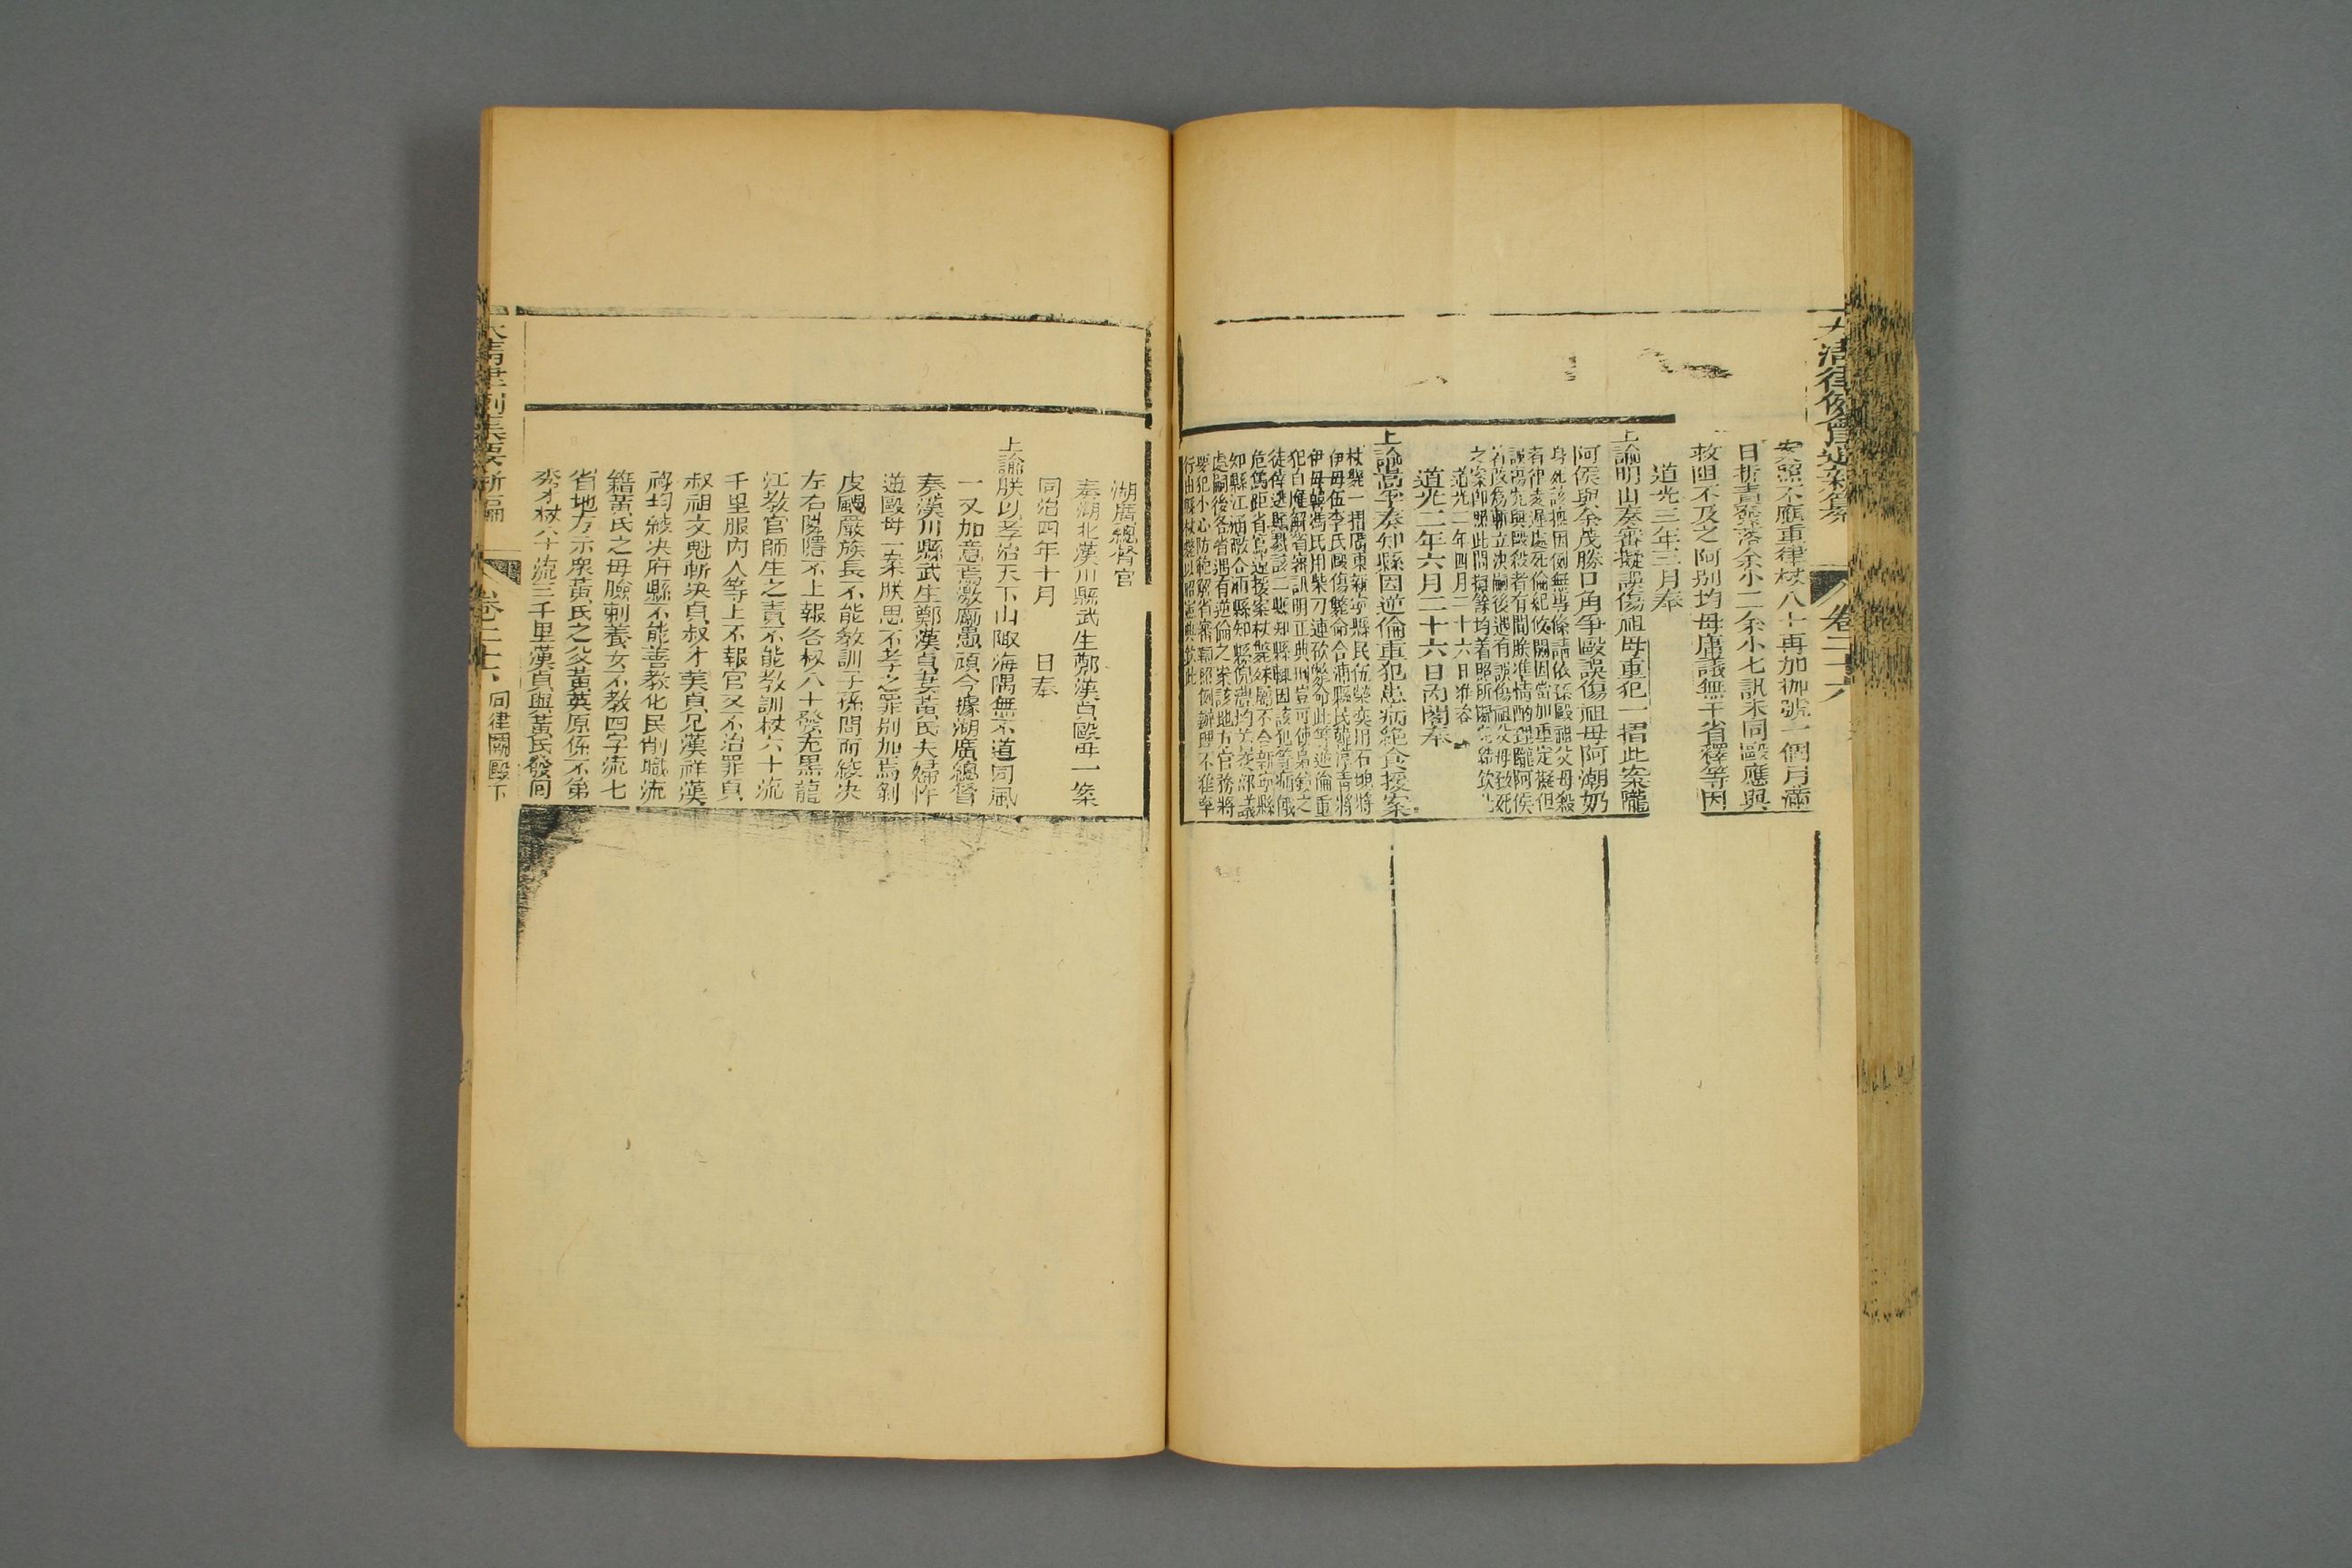 大清律例會通新纂
卷二十六
案照不應重律杖八十再加枷號一個月滿
日折責發落余小二余小七訊未同毆應與
救阻不及之阿别均毋庸議無干省釋等因
道光三年三月奉
上諭明山奏審擬誤傷祖母重犯一摺此案隴
阿侯與余茂勝口角爭毆誤傷祖母阿潮奶
身死該撫因例無專條請依孫毆祖父母殺
者律凌遲處死倫紀攸關因當加重定擬但
誤傷究與毆殺者有間朕准情酌理隴阿侯
著改為斬立決嗣後遇有誤傷祖父母致死
之案即照此問擬餘均着照所擬完結欽此
道光二年四月二十六日准咨
道光二年六月二十六日內閣奉
上諭嵩孚奏知縣因逆倫重犯患病絕食援案
杖斃一摺廣東新寧縣民伍榮奕用石塊將
伊母伍李氏毆傷斃命合浦縣民韓淳青將
伊母韓馮氏用柴刀連砍斃命此等逆倫重
犯自應解省審訊明正典刑豈可使梟獍之
徒倖逃顯戮該二縣知縣輒因該犯等病餓
危篤距省寫遠援案杖斃殊屬不合新寧縣
知縣江涵暾合浦縣知縣倪澧均着交部議
處嗣後各省遇有逆倫之案該地方官務將
要犯小心防範解省審辦照例辦理不准率
行由縣杖斃以昭憲典欽此
湖廣總督官
奏湖北漢川縣武生鄭漢貞毆母一案
同治四年十月 日奉
上諭朕以孝治天下山陬海隅無不道同風
一又加意焉激勵愚頑今據湖廣總督
奏漢川縣武生鄭漢貞其黃氏夫婦忤
逆毆母一案朕思不孝之罪别加焉剝
皮颺嚴族長不能教訓子孫問而綾决
左右隣隱不上報各杖八十發充黑龍
江教官師生之責不能教訓杖六十流
千里服內人等上不報官又不治罪貞
叔祖文魁斬決貞叔才美貞兄漢祥漢
均綾决府縣不能善教化民削職流
籍黃氏之母臉刺養女不教四字流七
省地方示眾黃氏之父黃英原係不第
秀才杖六十流三千里漢貞與黃氏發回
大清律例集要新編
卷二十
同律鬬毆下